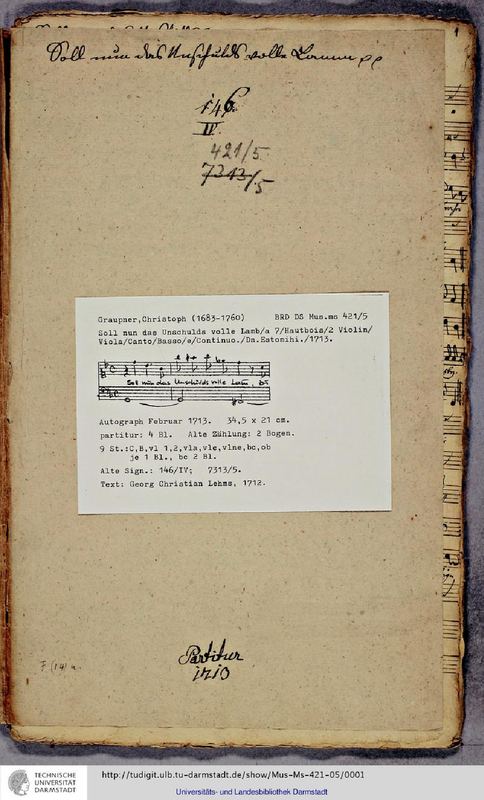 Soll nun das Unschulds volle Lamm pp
146.
IV.
421/5.
7313/5
Graupner,Christoph (1683-1760) BRD DS Mus.ms 421/5
Soll nun das Unschulds volle Lamb/a 7/Hautbois/2 Violin/
Viola/Canto/Basso/e/Continuo./Dn.Estomihi./1713.
Soll nun das Unschulds volle Lam, Di
Autograph Februar 1713. 34,5 x 21 cm.
partitur: 4 Bl. Alte Zählung: 2 Bogen.
9 St.:C,B,vl 1,2,vla,vlc,vlne,bc,ob
je 1 Bl., bc 2 Bl.
Alte Sign.: 146/IV; 7313/5.
Text: Georg Christian Lehms, 1712.
Partitur
1713
TECHNISCHE
UNIVERSITÄT
DARMSTADT
http://tudigit.ulb.tu-darmstadt.de/show/Mus-Ms-421-05/0001
Universitäts- und Landesbibliothek Darmstadt